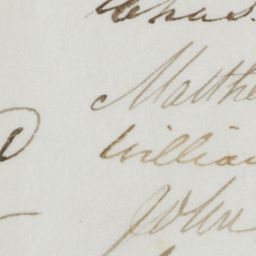 Chas.
Matthe
William
John